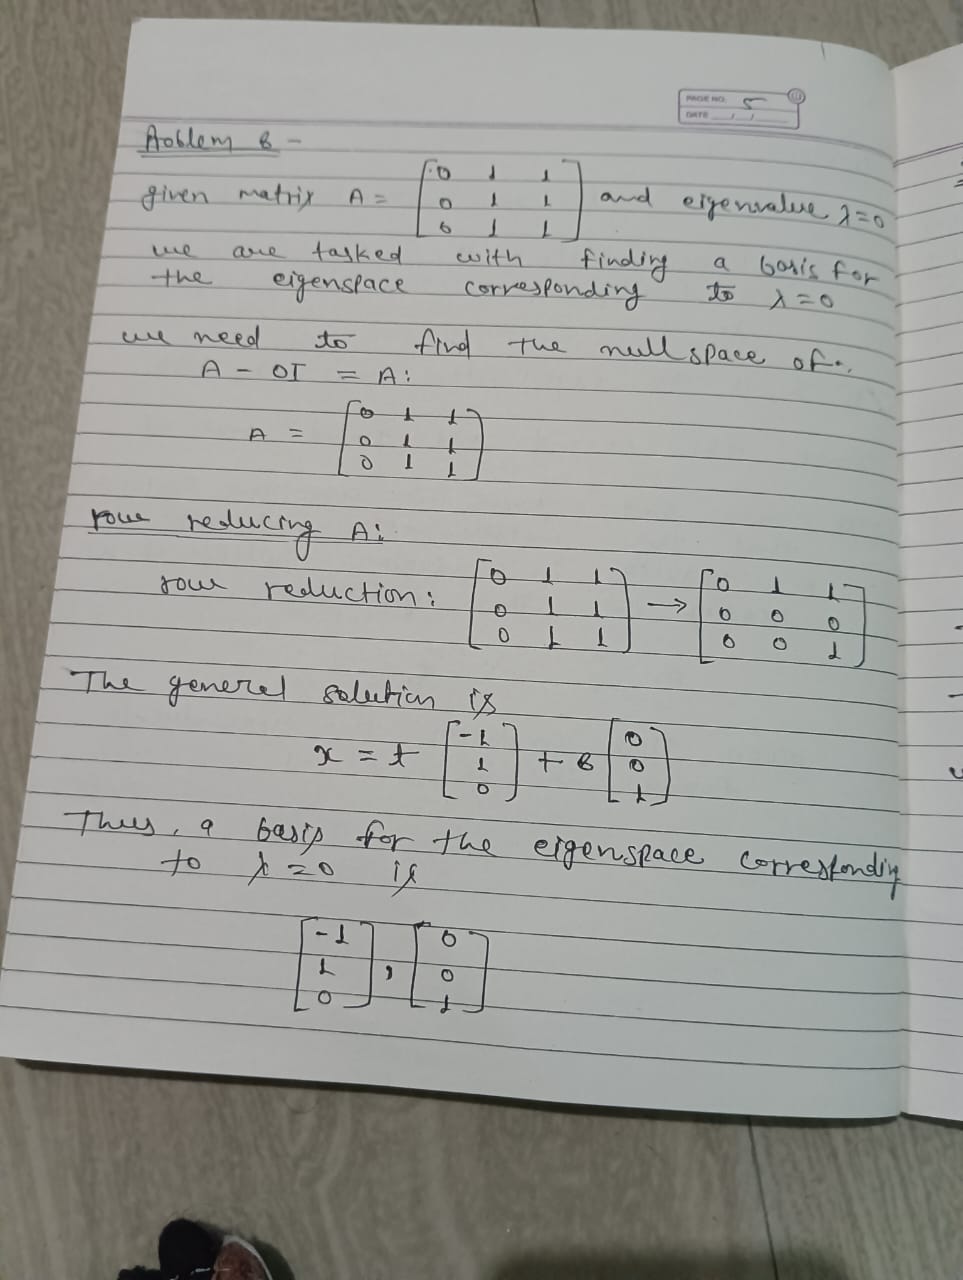 PAGE NO. 5
DATE / /
Aoblem 6 -
given matrix A = [0 1 1
0 1 1
0 1 1] and eigenvalue λ=0
we are tasked with finding a basis for
the eigenspace corresponding to λ=0
we need to find the null space of:
A - OI = A:
A = [0 1 1
0 1 1
0 1 1]
row reducing A:
row reduction: [0 1 1
0 1 1
0 1 1] → [0 1 1
0 0 0
0 0 1]
The general solution is
x = t [-1
1
0] + 6 [0
0
1]
Thus, a basis for the eigenspace correspondin
to λ=0 is
[-1
1
0], [0
0
1]